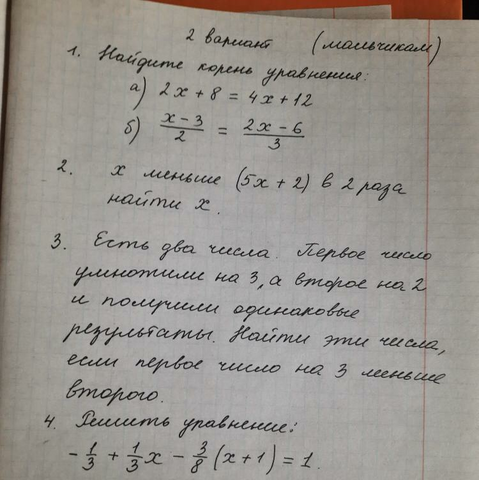 2 вариант (мальчикам)
1. Найдите корень уравнения:
а) 2x + 8 = 4x + 12
б) \frac{x-3}{2} = \frac{2x-6}{3}
2. x меньше (5x + 2) в 2 раза
найти x.
3. Есть два числа. Первое число
умножили на 3, а второе на 2
и получили одинаковые
результаты. Найти эти числа,
если первое число на 3 меньше
второго.
4. Решить уравнение:
-\frac{1}{3} + \frac{1}{3}x - \frac{3}{8}(x+1) = 1.